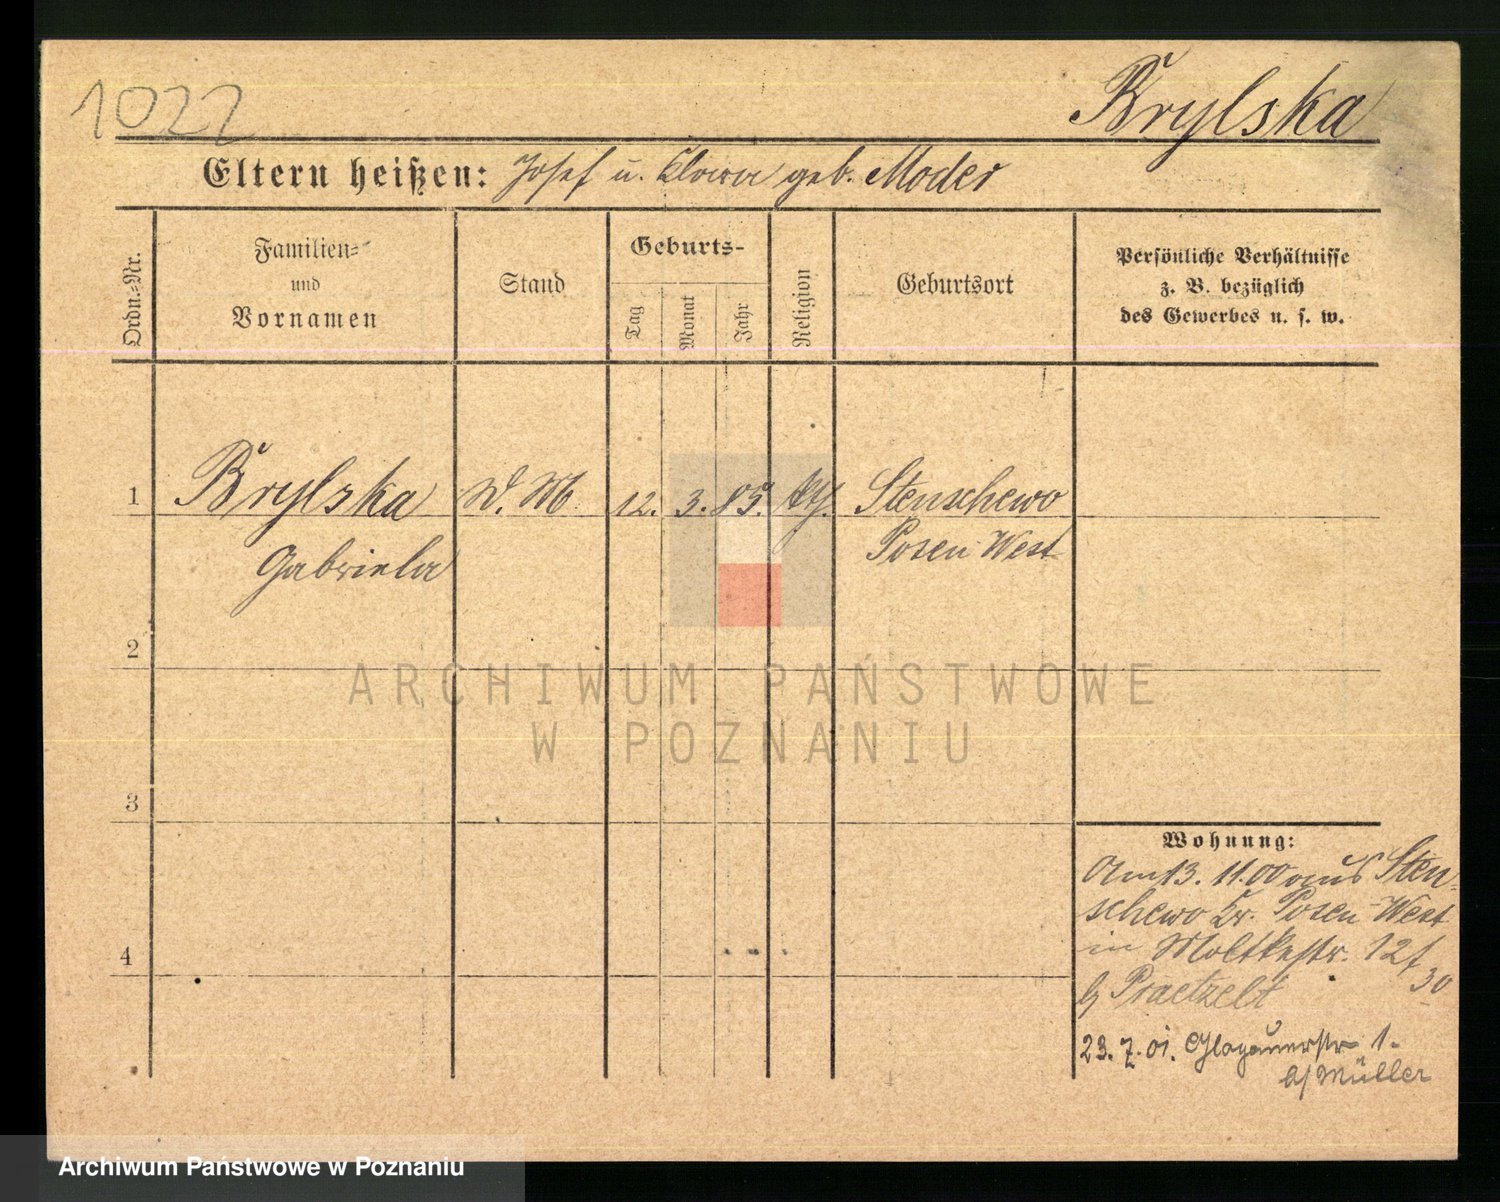 1022
Brylska
Eltern heißen: Josef u. Klara geb. Moder
Ordn.-Nr.
Familien-
und
Vornamen
Stand
Geburts-
Tag
Monat
Jahr
Religion
Geburtsort
Persönliche Verhältnisse
z. B. bezüglich
des Gewerbes u. s. w.
1
Brylska
D. M.
12. 3. 85.
Stenschewo
Gabriela
Posen West
2
3
4
Wohnung:
Am 13. 11. 00 aus Sten-
schewo Kr. Posen-West
in Moltkestr. 12
30
b/ Praetzelt
23. 7. 01. Glogauerstr 1.
b/ Müller
ARCHIWUM PAŃSTWOWE
W POZNANIU
Archiwum Państwowe w Poznaniu